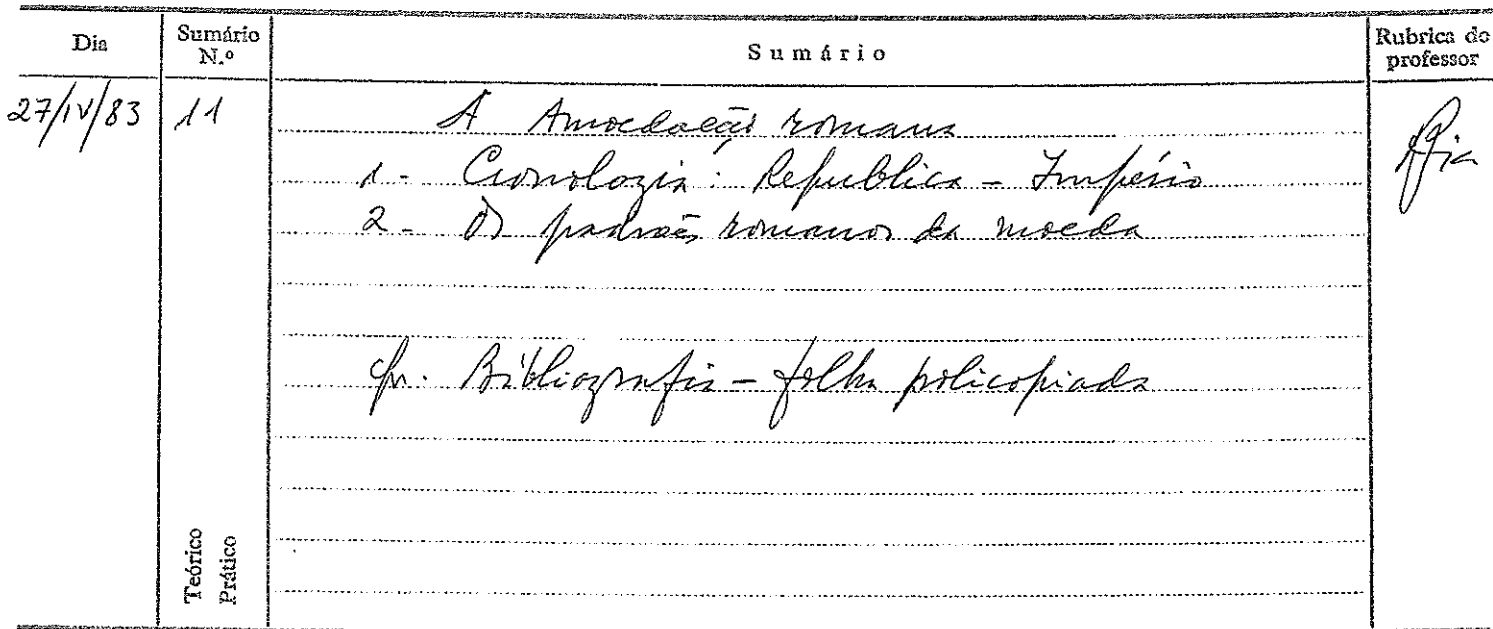 Dia
Sumário N.º
Sumário
Rubrica do professor
27/IV/83
11
A Amoedação romana
1 - Cronologia: Republica - Império
2 - Os padrões romanos da moeda
cfr. Bibliografia - folha policopiada
Teórico
Prático